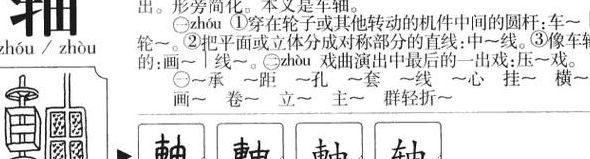 轴
zhóu / zhòu
出。形旁简化。本义是车轴。
㊀zhóu ①穿在轮子或其他转动的机件中间的圆杆:车～
轮～。②把平面或立体分成对称部分的直线:中～线。③像车轴
的:画～｜线～。㊁zhòu 戏曲演出中最后的一出戏:压～戏。
㊀～承 ～距 ～孔 ～套 ～线 ～心 挂～ 横～
画～ 卷～ 立～ 主～ 群轻折～
軸 軸 軸 轴